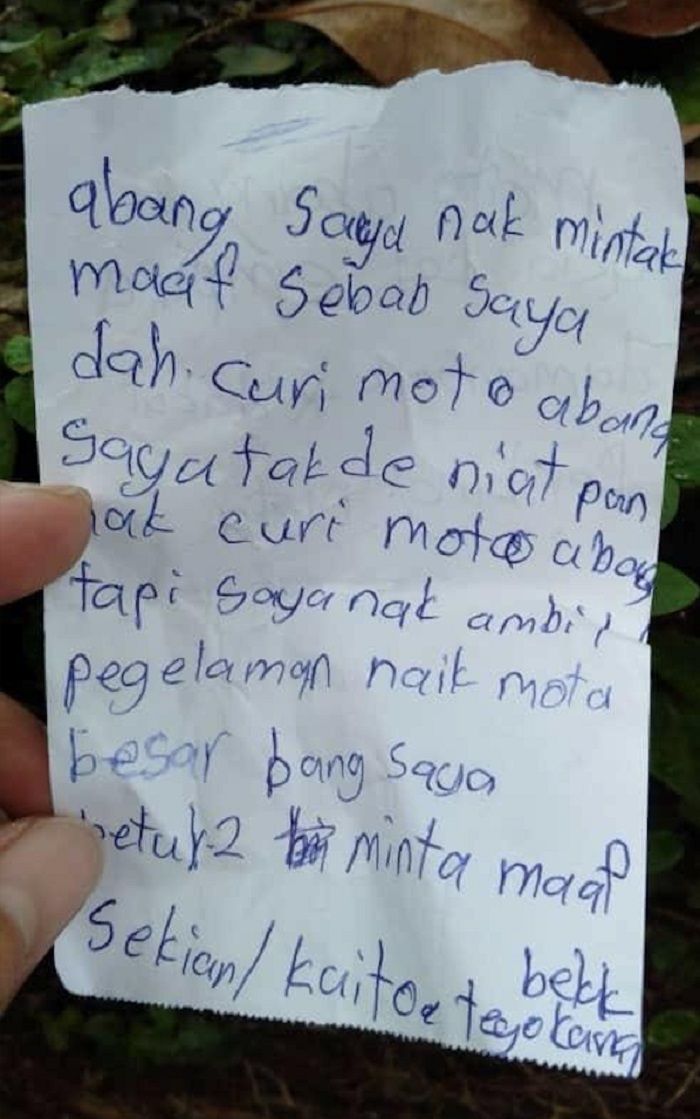 abang saya nak mintak
maaf sebab saya
dah. curi moto abang
saya takde niat pan
nak curi moto abag
tapi saya nak ambil
pegelaman naik mota
besar bang saya
betul-2 minta maaf
sekian/ kaito
bekk